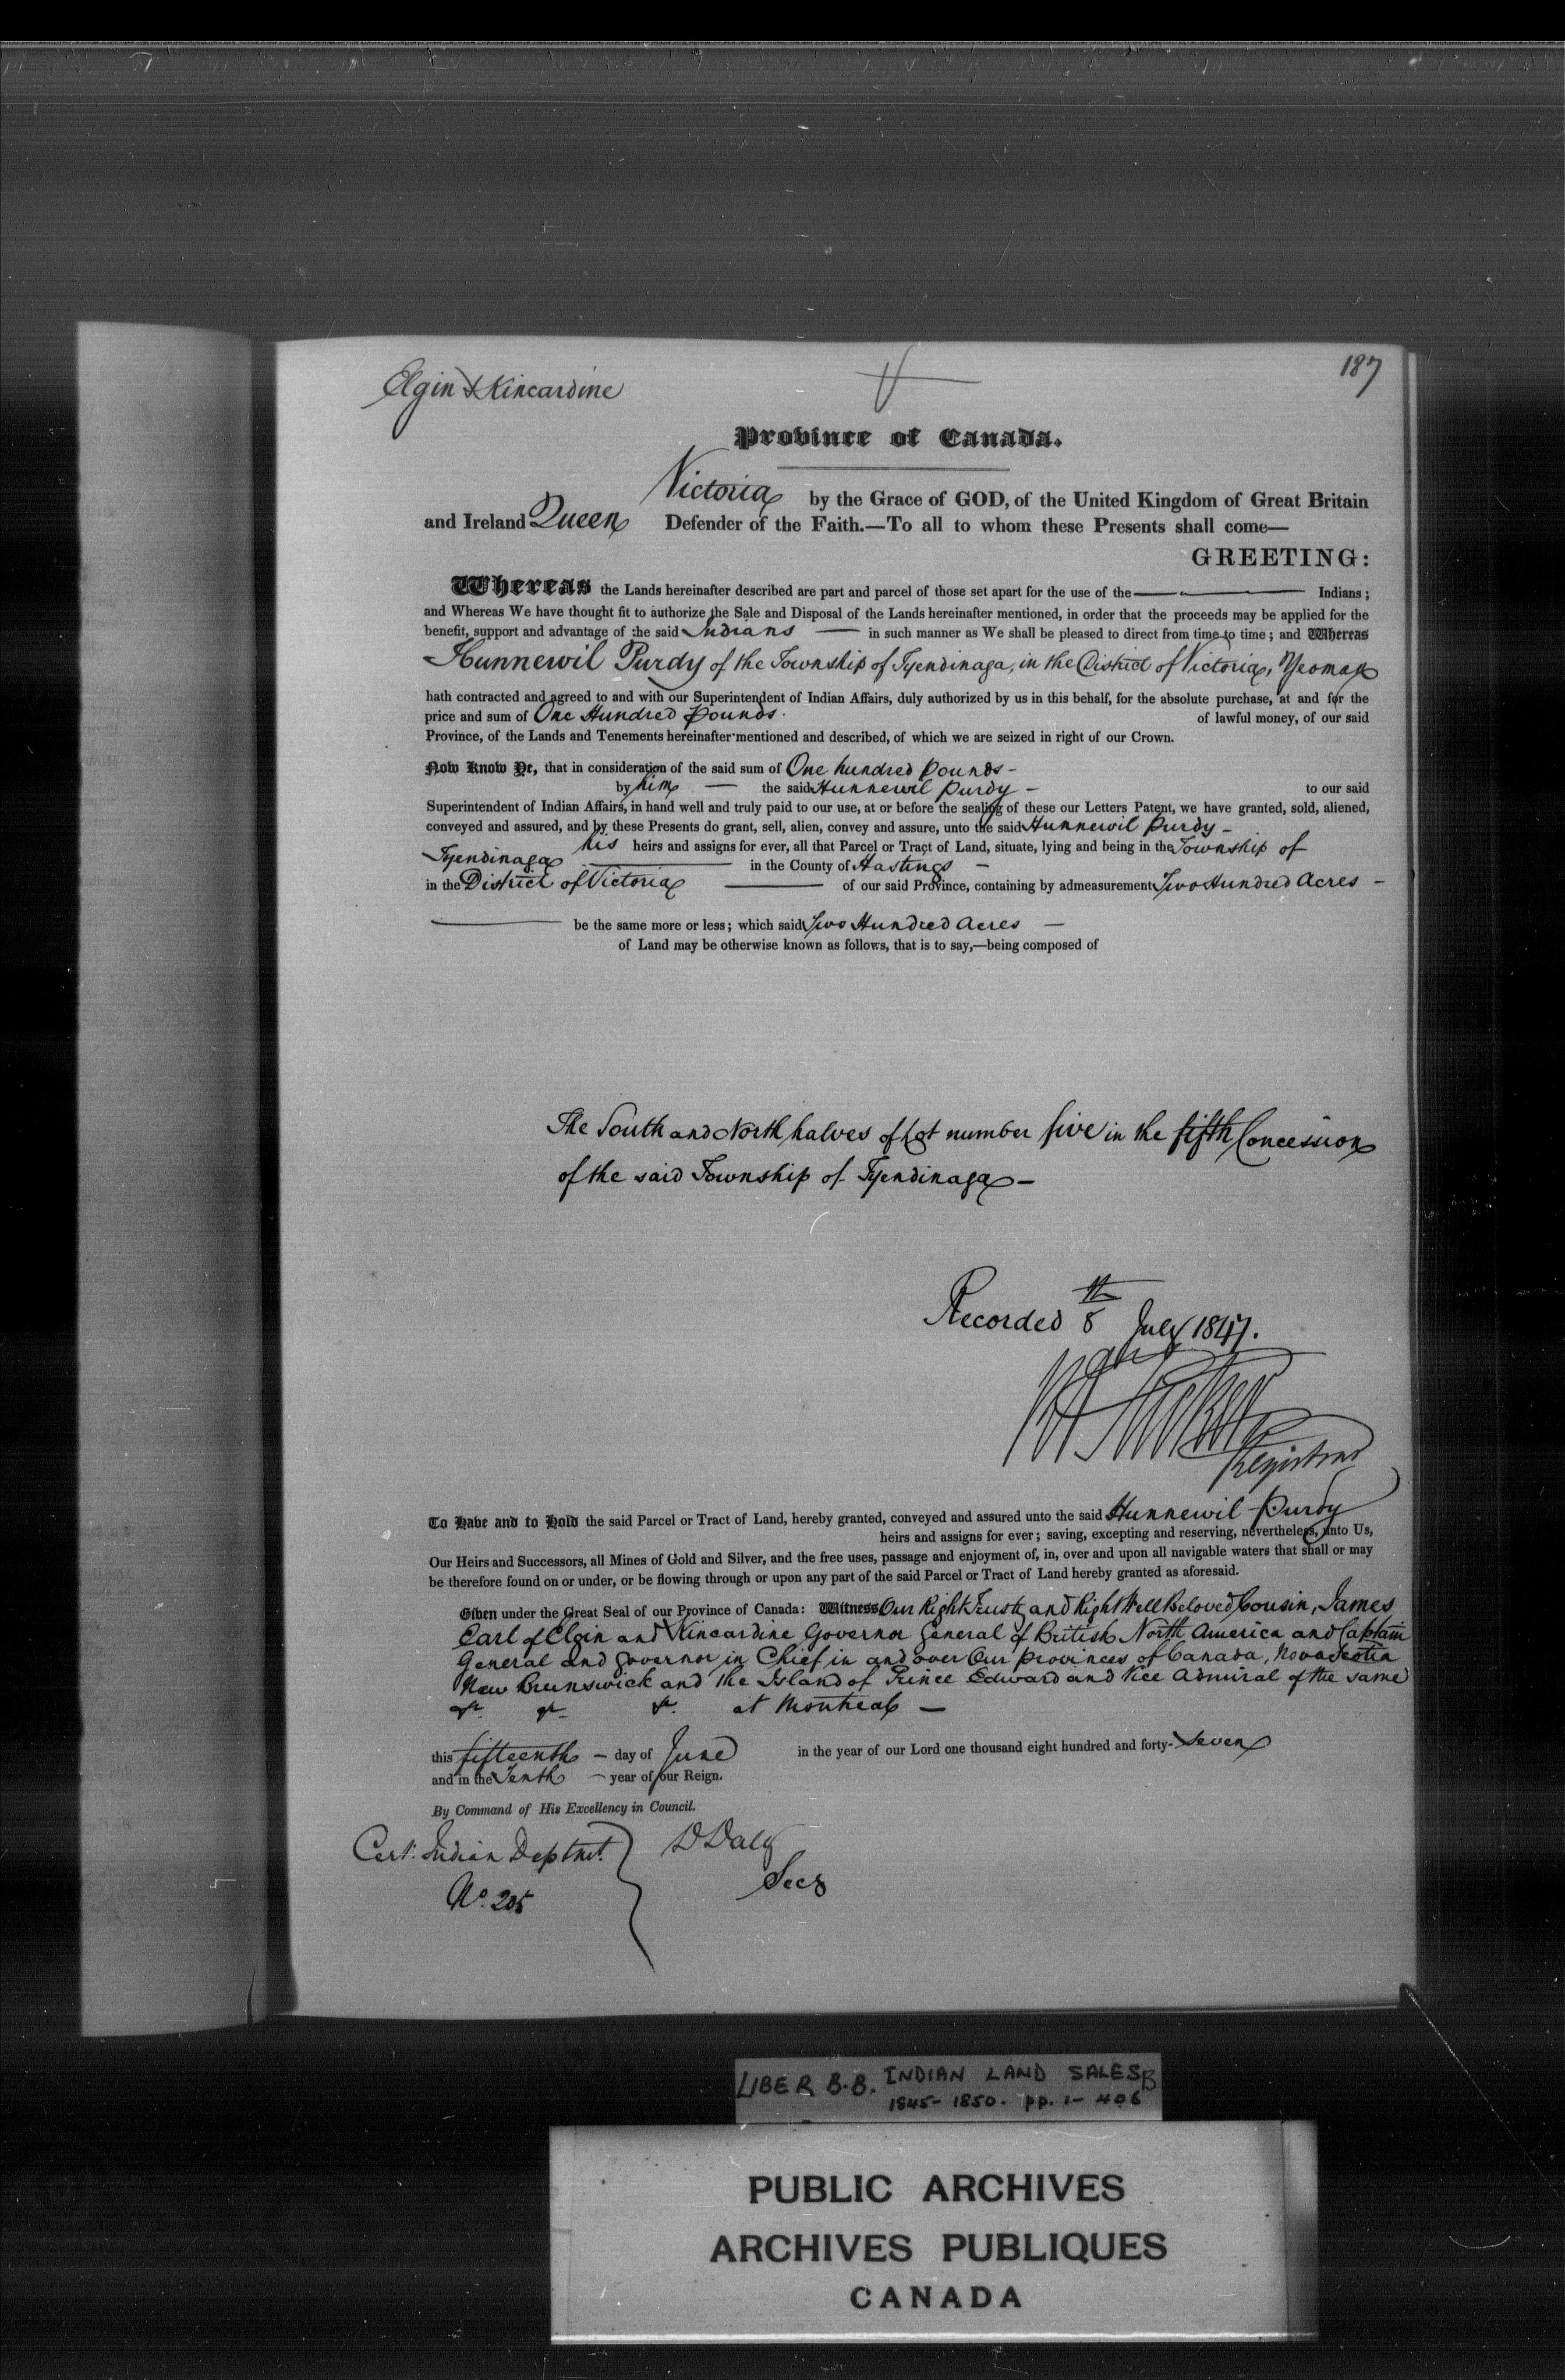 187
Elgin & Kincardine
Province of Canada.
Victoria by the Grace of GOD, of the United Kingdom of Great Britain
and Ireland Queen Defender of the Faith.—To all to whom these Presents shall come—
GREETING:
Whereas the Lands hereinafter described are part and parcel of those set apart for the use of the — Indians;
and Whereas We have thought fit to authorize the Sale and Disposal of the Lands hereinafter mentioned, in order that the proceeds may be applied for the
benefit, support and advantage of the said Indians — in such manner as We shall be pleased to direct from time to time; and Whereas
Hunnewil Purdy of the Township of Tyendinaga, in the District of Victoria, Yeoman
hath contracted and agreed to and with our Superintendent of Indian Affairs, duly authorized by us in this behalf, for the absolute purchase, at and for the
price and sum of One Hundred Pounds. of lawful money, of our said
Province, of the Lands and Tenements hereinafter mentioned and described, of which we are seized in right of our Crown.
Now Know Ye, that in consideration of the said sum of One hundred Pounds -
by him — the said Hunnewil Purdy - to our said
Superintendent of Indian Affairs, in hand well and truly paid to our use, at or before the sealing of these our Letters Patent, we have granted, sold, aliened,
conveyed and assured, and by these Presents do grant, sell, alien, convey and assure, unto the said Hunnewil Purdy -
his heirs and assigns for ever, all that Parcel or Tract of Land, situate, lying and being in the Township of
Tyendinaga — in the County of Hastings -
in the District of Victoria — of our said Province, containing by admeasurement Two Hundred Acres -
— be the same more or less; which said Two Hundred Acres —
of Land may be otherwise known as follows, that is to say,—being composed of
The South and North halves of Lot number five in the fifth Concession
of the said Township of Tyendinaga -
Recorded 8th July 1847.
Registrar
To Have and to Hold the said Parcel or Tract of Land, hereby granted, conveyed and assured unto the said Hunnewil Purdy
heirs and assigns for ever; saving, excepting and reserving, nevertheless, unto Us,
Our Heirs and Successors, all Mines of Gold and Silver, and the free uses, passage and enjoyment of, in, over and upon all navigable waters that shall or may
be therefore found on or under, or be flowing through or upon any part of the said Parcel or Tract of Land hereby granted as aforesaid.
Given under the Great Seal of our Province of Canada: Witness Our Right Trusty and Right Well Beloved Cousin, James
Earl of Elgin and Kincardine Governor General of British North America and Captain
General and Governor in Chief in and over Our Provinces of Canada, Nova Scotia
New Brunswick and the Island of Prince Edward and Vice Admiral of the same
&c. &c. &c. at Montreal —
this fifteenth - day of June in the year of our Lord one thousand eight hundred and forty-Seven
and in the Tenth - year of our Reign.
By Command of His Excellency in Council.
Cert. Indian Deptmt. D Daly
No. 205 Secy
LIBER B.B. INDIAN LAND SALES B
1845-1850. pp. 1-406
PUBLIC ARCHIVES
ARCHIVES PUBLIQUES
CANADA